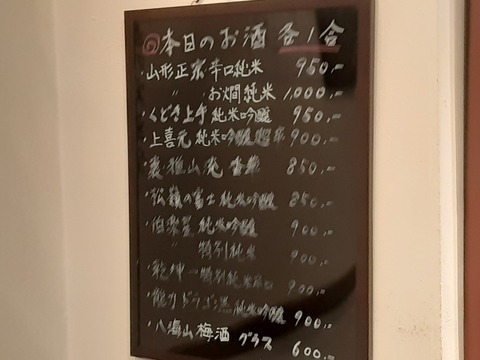 ◎本日のお酒 各1合
・山形正宗 辛口純米 950,-
〃 〃 お燗純米 1,000,-
・くどき上手 純米吟醸 950,-
・上喜元 純米吟醸 900,-
・裏・雅山流 香華 850,-
・松嶺の富士 純米吟醸 850,-
・伯楽星 純米吟醸 900,-
〃 特別純米 900,-
・乾坤一 特別純米辛口 900,-
純米吟醸 900,-
・八海山 梅酒 グラス 600,-